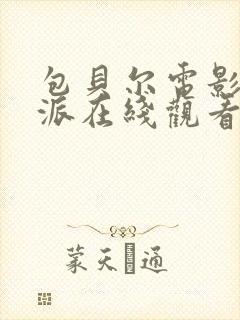 包貝尔電影
派在綫觀看
蒙天 通